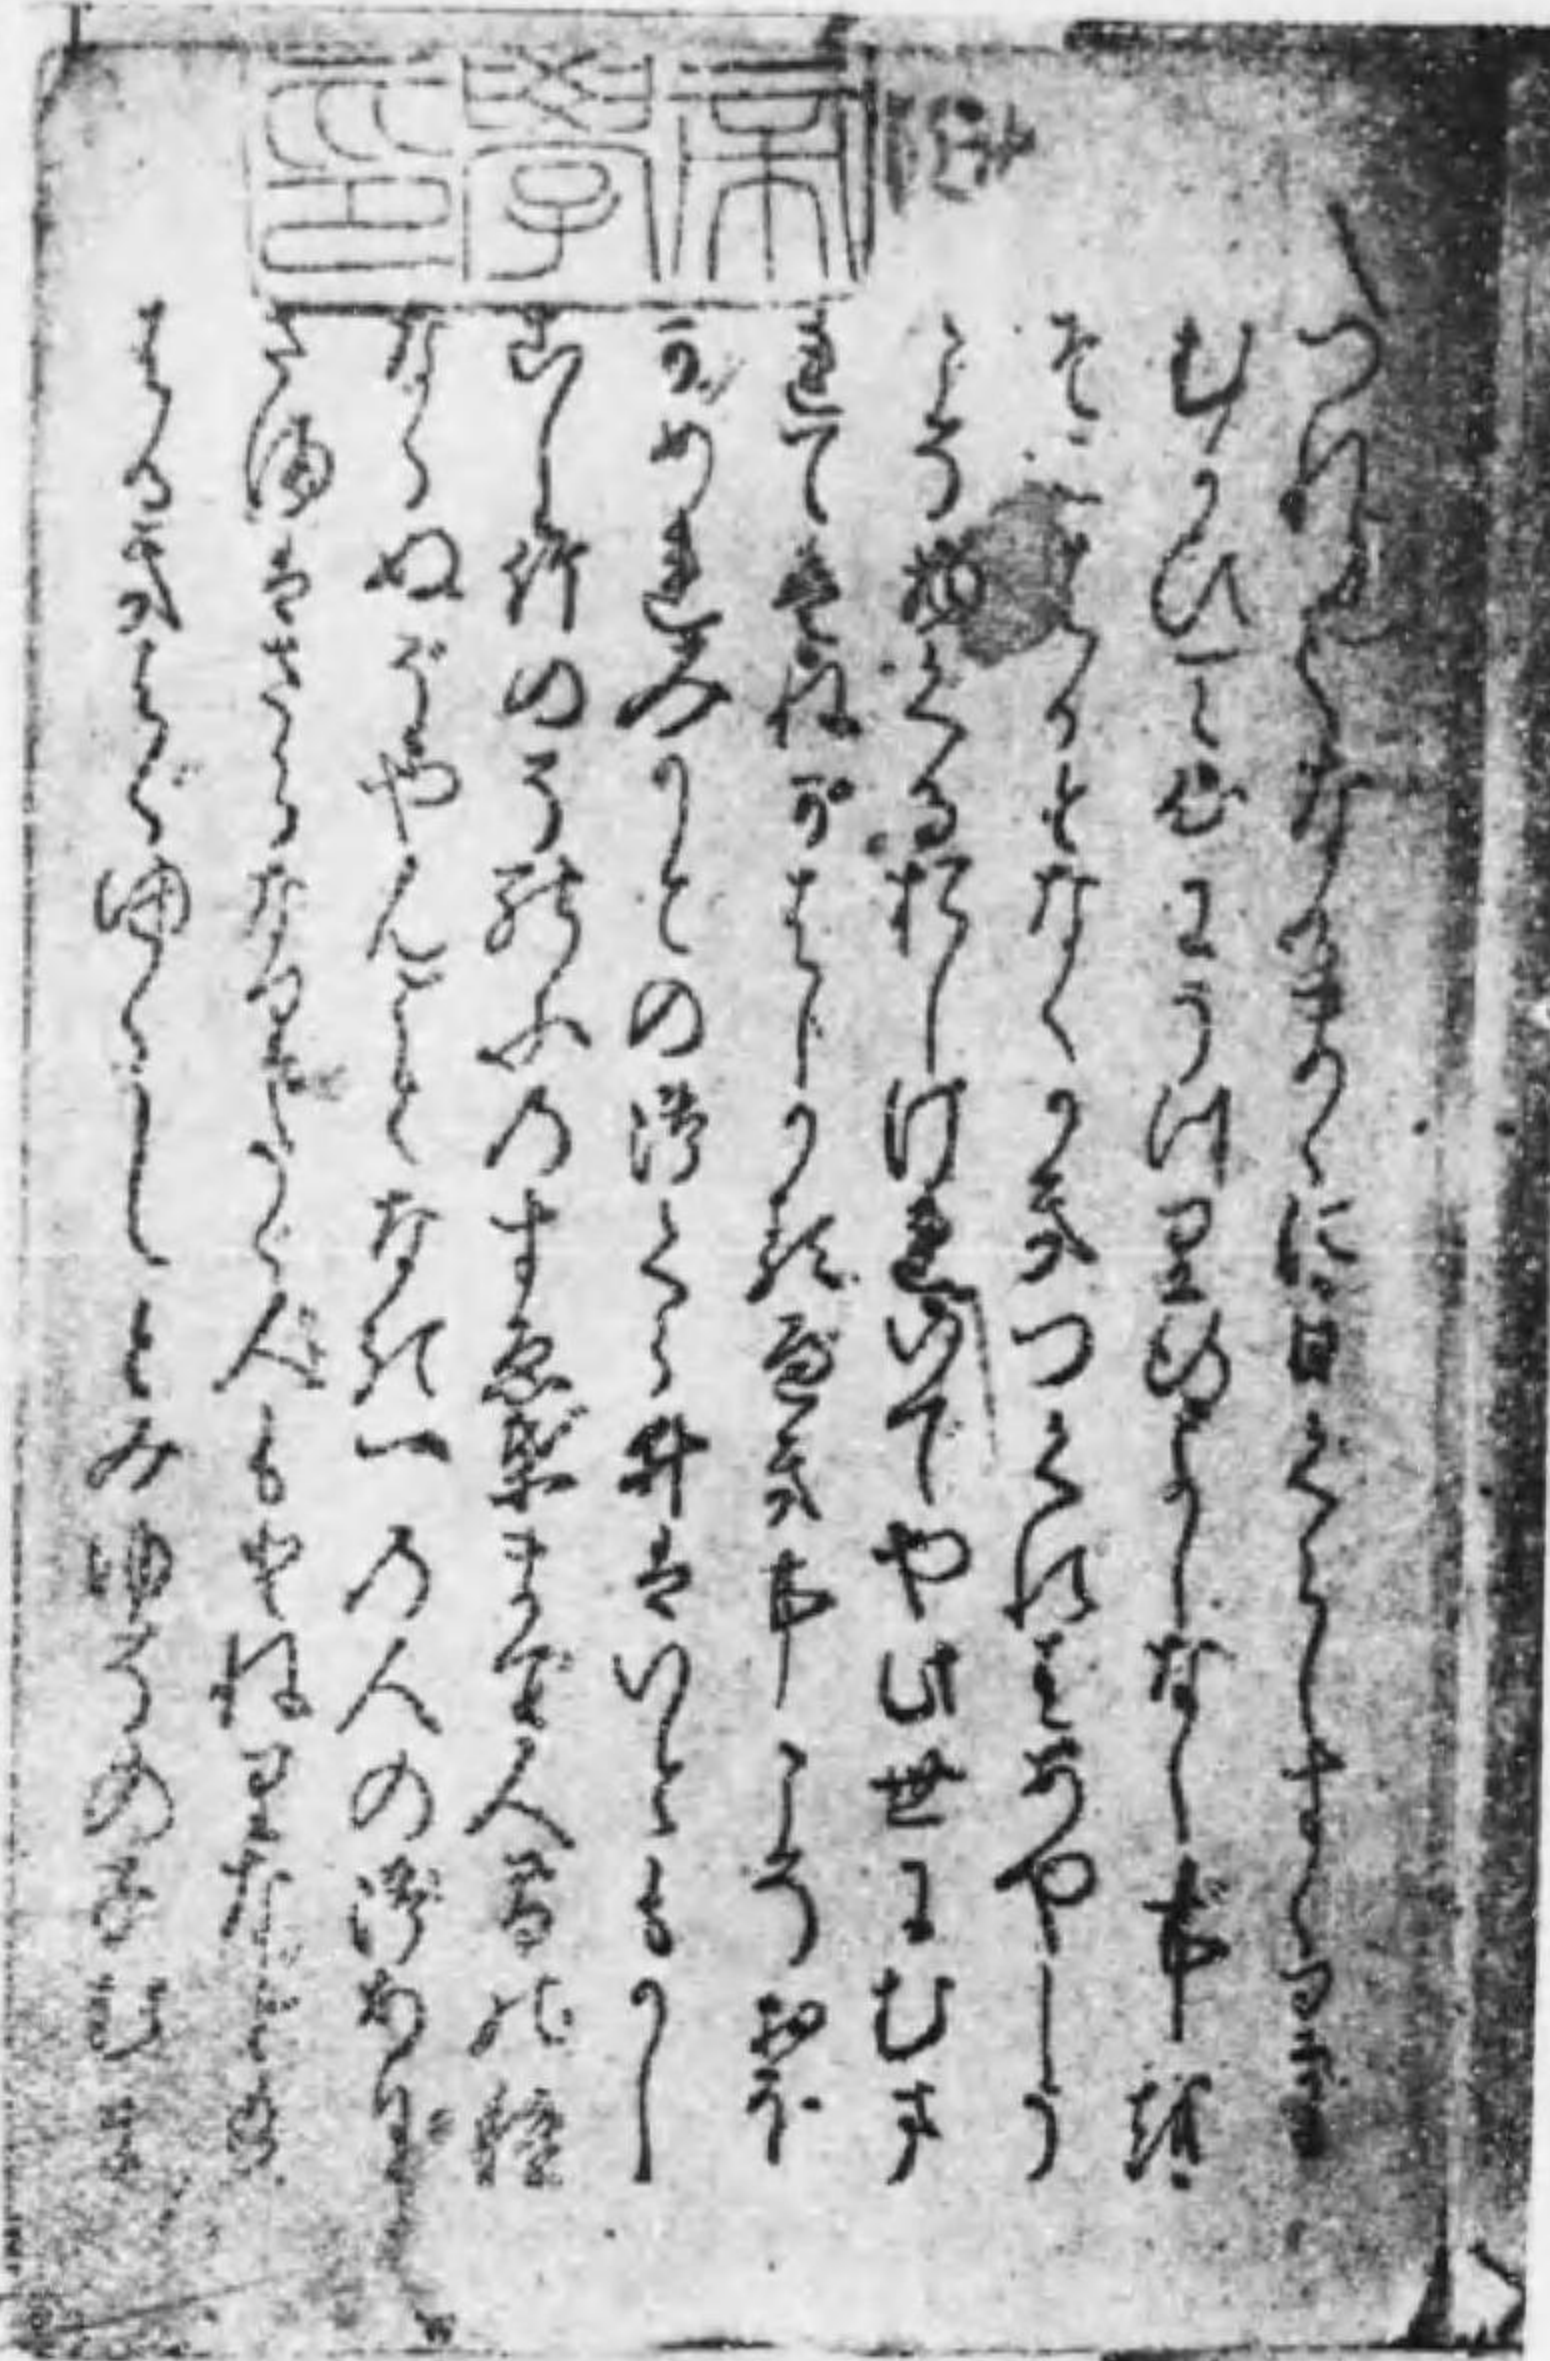 つれ〱なるまゝに日ぐらしすゞりに
むかひて心にうつりゆくよしなし事を
そこはかとなくかきつくればあやしう
こそ物ぐるおしけれいでや此世にむま
れてはねがはしかるべき事こそおほ
かめれみかどの御くら井はいともかし
こし竹のそのふのすゑ葉まで人間の種
ならぬぞやんごとなき一の人の御あり
さまはさらなりたゞ人もとねりなど給
はるきはゝゆゝしとみゆそのこむま